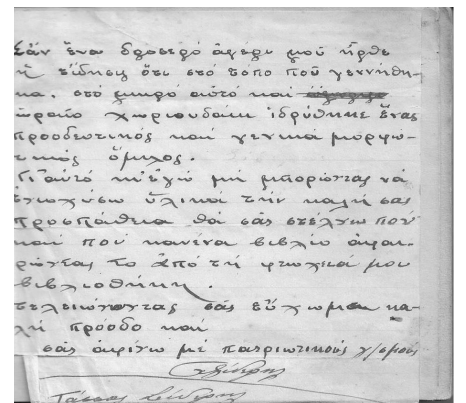 Σάν ἕνα δροσερό ἀγέρι μοῦ ἦρθε
ἡ εἴδησις ὅτι στό τόπο πού γεννήθη-
κα. στό μικρό αὐτό καί
ὡραῖο χωριουδάκι ἱδρύθηκε ἕνας
προοδευτικός καί γενικά μορφω-
τικός ὅμιλος.
Γι αὐτό κ' ἐγώ μή μπορώντας νά
ἐνισχύσω ὑλικά τήν καλή σας
προσπάθεια θά σᾶς στέλνω πού
καί πού κανένα βιβλίο ἀφαι-
ρώντας το ἀπό τή φτωχειά μου
βιβλιοθήκη.
τελειώνοντας σᾶς εὔχωμαι κα-
λή πρόοδο καί
σᾶς ἀφίνω μέ πατριωτικούς χ/σμούς